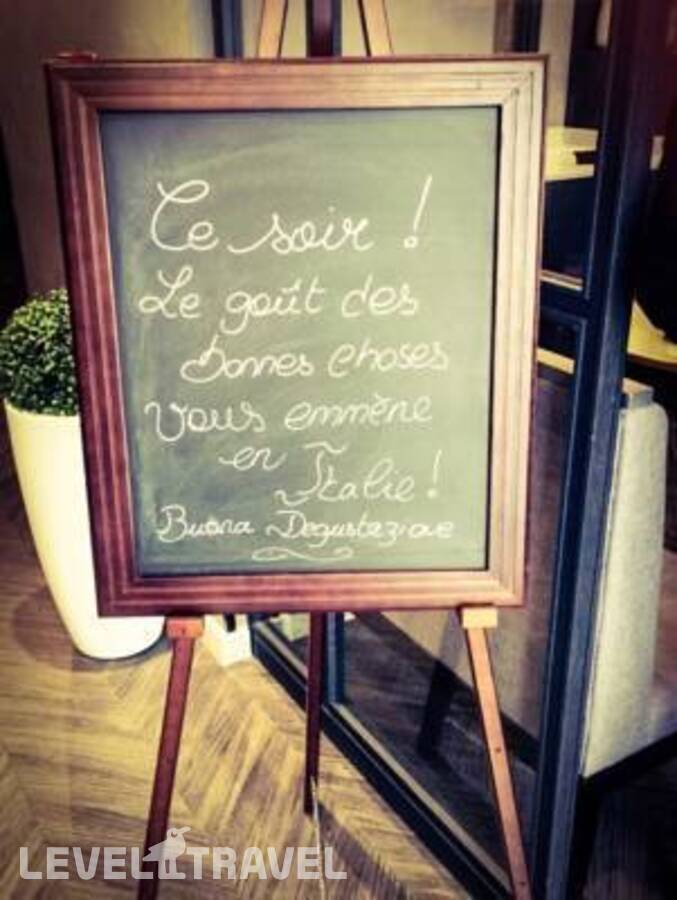 Ce soir !
Le goût des
bonnes choses
vous emmène
en
Italie !
Buona Degustazione
LEVEL TRAVEL